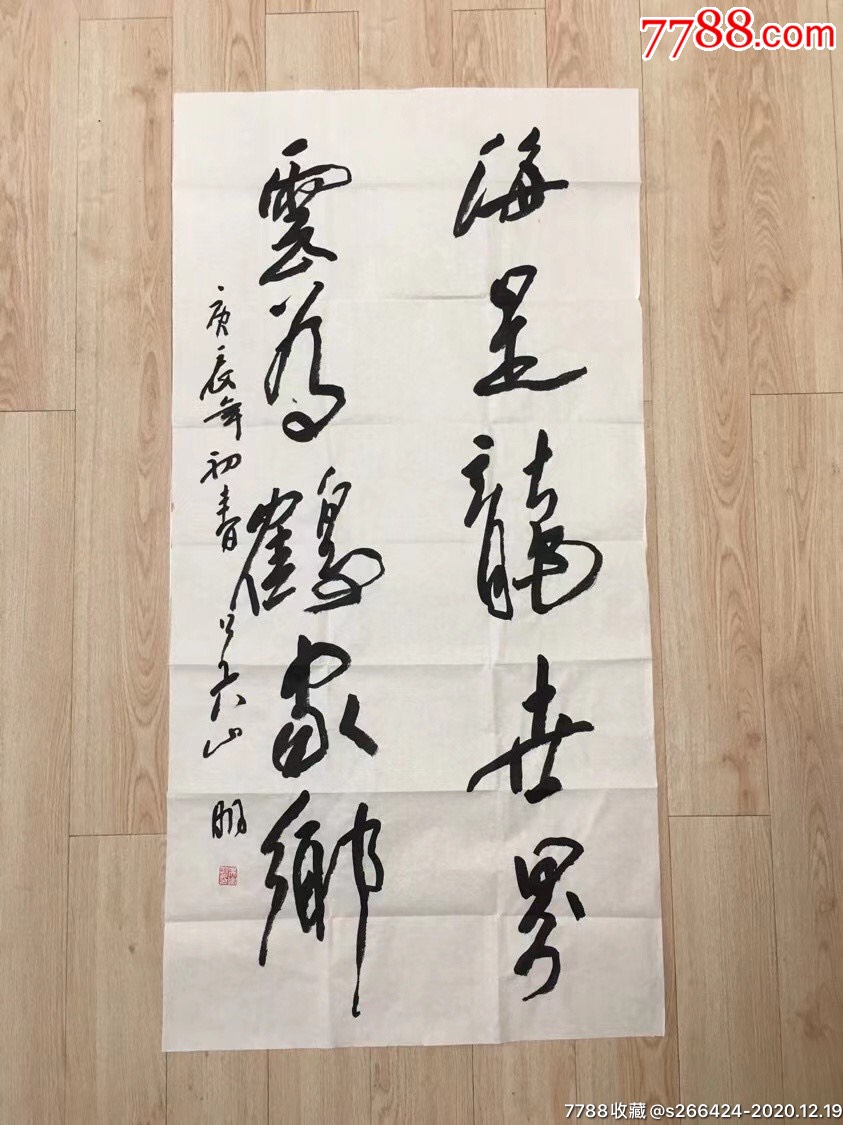 7788.com
海是龍世界
雲為鶴家鄉
庚辰年初春吴山明
7788收藏@s266424-2020.12.19